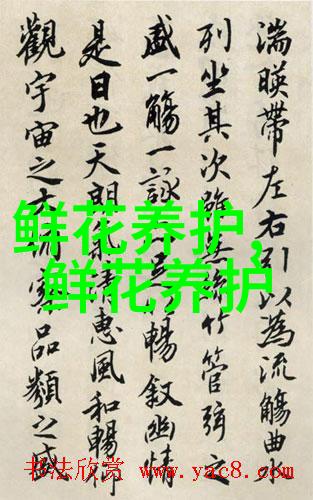 湍暎帶左右引以為流觴曲水
列坐其次雖無絲竹管弦之
盛一觴一詠暢叙幽情
是日也天朗氣清惠風和暢仰
觀宇宙之大俯察品類之盛
鲜花养护，
鲜花养护
书法欣赏 www.yac8.com